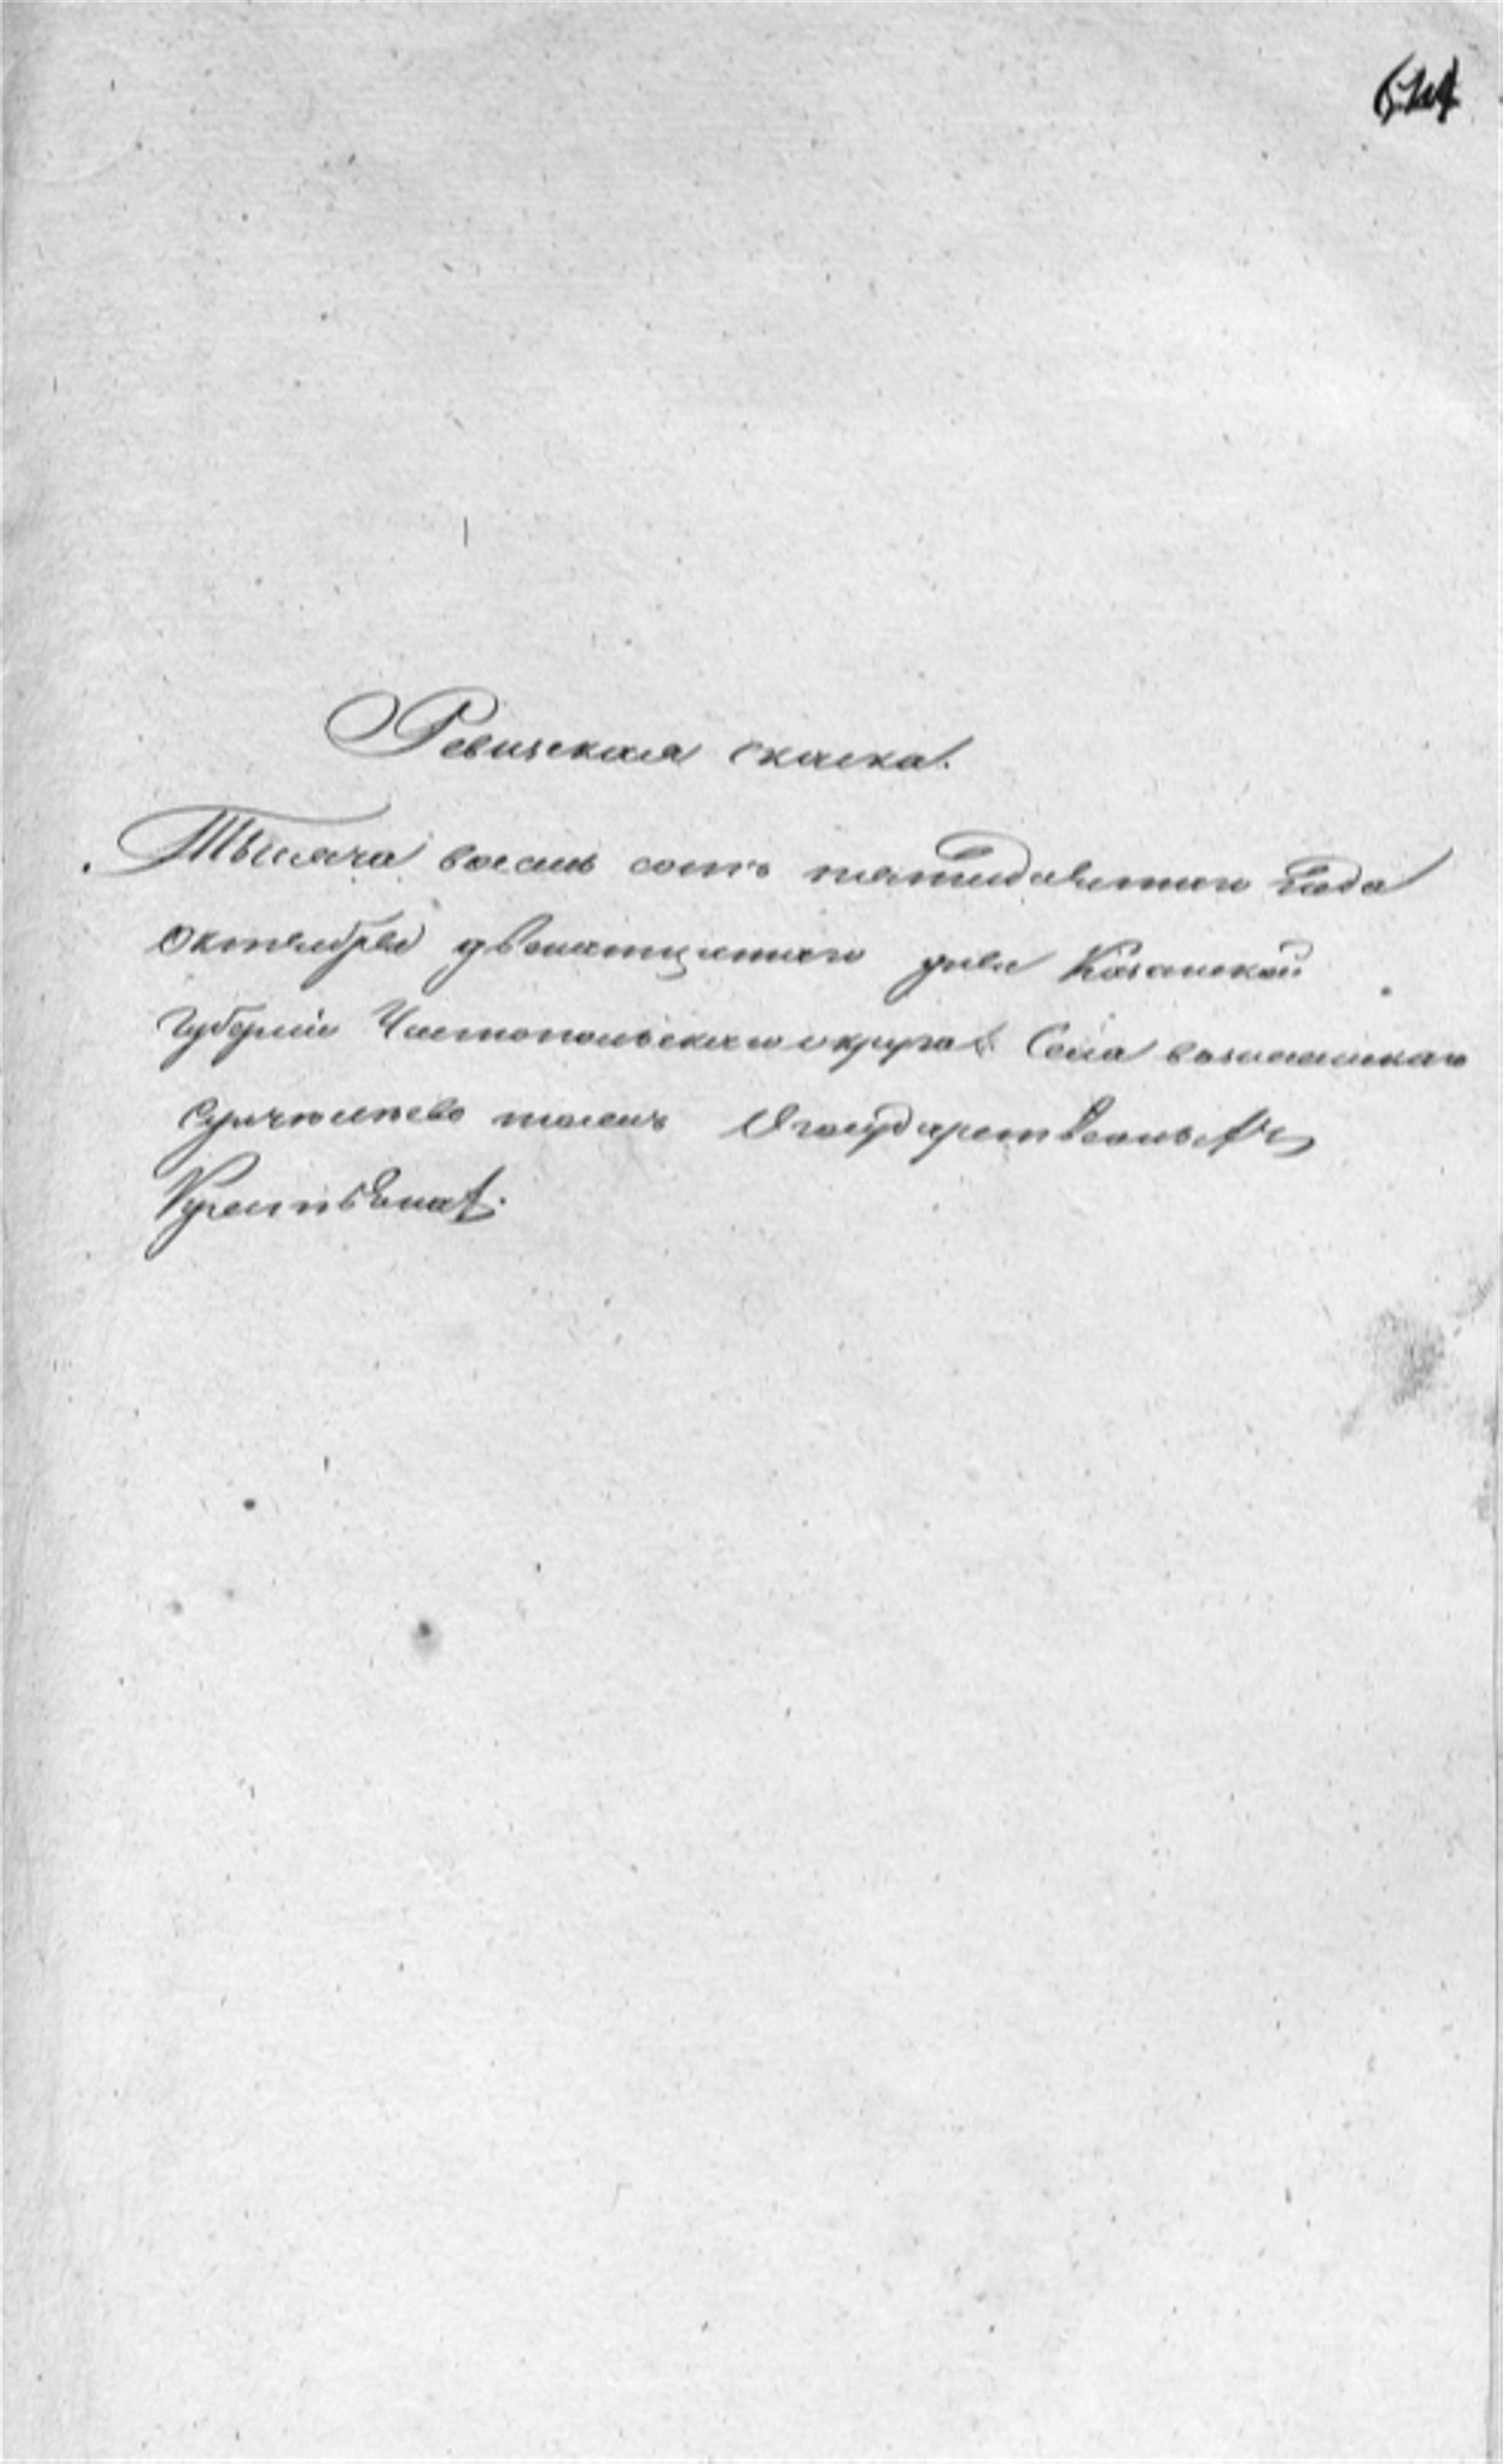 624
Ревизская скаска.
Тысяча восемь сотъ пятидесятого года
октября двенатцатаго дня Казанской
губернiи Чистопольскаго округа Села вознесенскаго
тожъ О государственныхъ
Крестьянах.